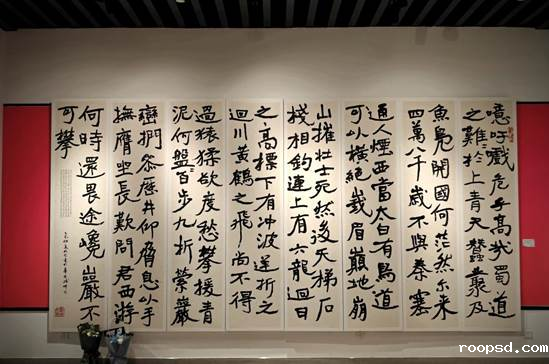 噫吁戲危乎高哉蜀道
之難〻於上青天蠶叢及
魚鳧開國何茫然尔来
四萬八千歲不與秦塞
通人煙西當太白有鳥道
可以橫絕峨眉巔地崩
山摧壯士死然後天梯石
棧相鉤連上有六龍迴日
之高標下有冲波逆折之
迴川黃鶴之飛尚不得
過猿猱欲度愁攀援青
泥何盤〻百步九折縈巖
巒捫參歷井仰脅息以手
撫膺坐長歎問君西游
何時還畏途巉巖不
可攀
roopsd.com